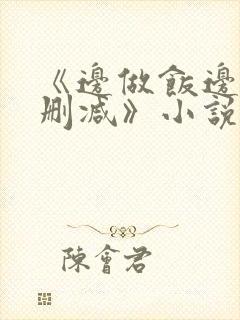 《邊做飯邊
刪減》小說
陳會君